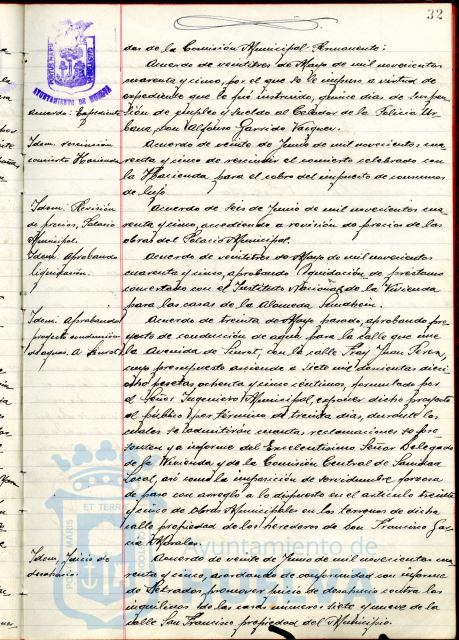 32
das de la Comisión Municipal Permanente:
Acuerdo de veintitres de Mayo de mil novecientos
cuarenta y cinco, por el que se le impuso a virtud de
Acuerdo: Expediente
expediente que le fué instruido, quince dias de suspen
sión de empleo y sueldo al Celador de la Policia Ur
bana, Don Alfonso Garrido Vazquez.
Idem. rescisión
concierto Hacienda
Acuerdo de veinte de Junio de mil novecientos cua
renta y cinco de rescindir el concierto celebrado con
la Hacienda para el cobro del impuesto de consumos
de lujo
Idem. Revisión
de precios, Palacio
Municipal.
Acuerdo de seis de Junio de mil novecientos cua
renta y cinco, accediendo a revisión de precios de las
obras del Palacio Municipal.
Idem. Aprobando
liquidación.
Acuerdo de veintitres de Mayo de mil novecientos
cuarenta y cinco, aprobando liquidación de préstamo
concertado con el Instituto Nacional de la Vivienda
para las casas de la Alameda Sundheim.
Idem. Aprobando
proyecto conducción
de aguas. A.
Acuerdo de treinta de Mayo pasado, aprobando pro
yecto de conducción de agua para la calle que une
la Avenida de con la calle Fray Juan Perez,
cuyo presupuesto asciende a siete mil doscientas dieci
ocho pesetas ochenta y cinco centimos, formulado por
el Señor Ingeniero Municipal, exponer dicho proyecto
al público por término de treinta dias, durante los
cuales se admitirán cuantas reclamaciones se pre
senten y a informe del Excelentisimo Señor Delegado
de la Vivienda y de la Comisión Central de Sanidad
Local, asi como la imposición de servidumbre forzosa
de paso con arreglo a lo dispuesto en el articulo treinta
y cinco de Obras Municipales en los terrenos de dicha
calle propiedad de los herederos de Don Francisco Gar
cia Morales.
Idem. Juicio de
desahucio.
Acuerdo de veinte de Junio de mil novecientos cua
renta y cinco, acordando de conformidad con informe
de Letrados promover juicio de desahucio contra los
inquilinos de las casas números siete y nueve de la
calle San Francisco propiedad del Municipio.
AYUNTAMIENTO DE HUELVA
Ayuntamiento de
HUELVA